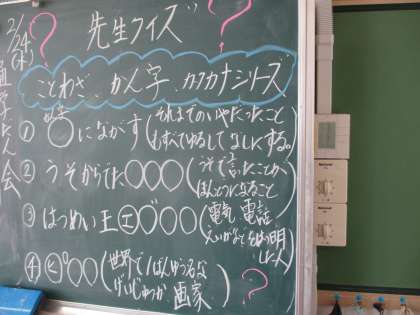 2/24(水)
先生クイズ
?
?
ことわざ、かん字、カタカナシリーズ
① 〇(かん字)にながす(それまでのいやだったことも、すべてゆるしてなしにする。)
② うそからでた〇〇〇(うそで言ったことが、ほんとうになること)
③ はつめい王 エ〇゛〇〇〇(電気 電話 えいがなどをはつ明した人)
④ ピ〇〇(世界で1ばんゆう名なげいじゅつか 画家)
?
通学だん会